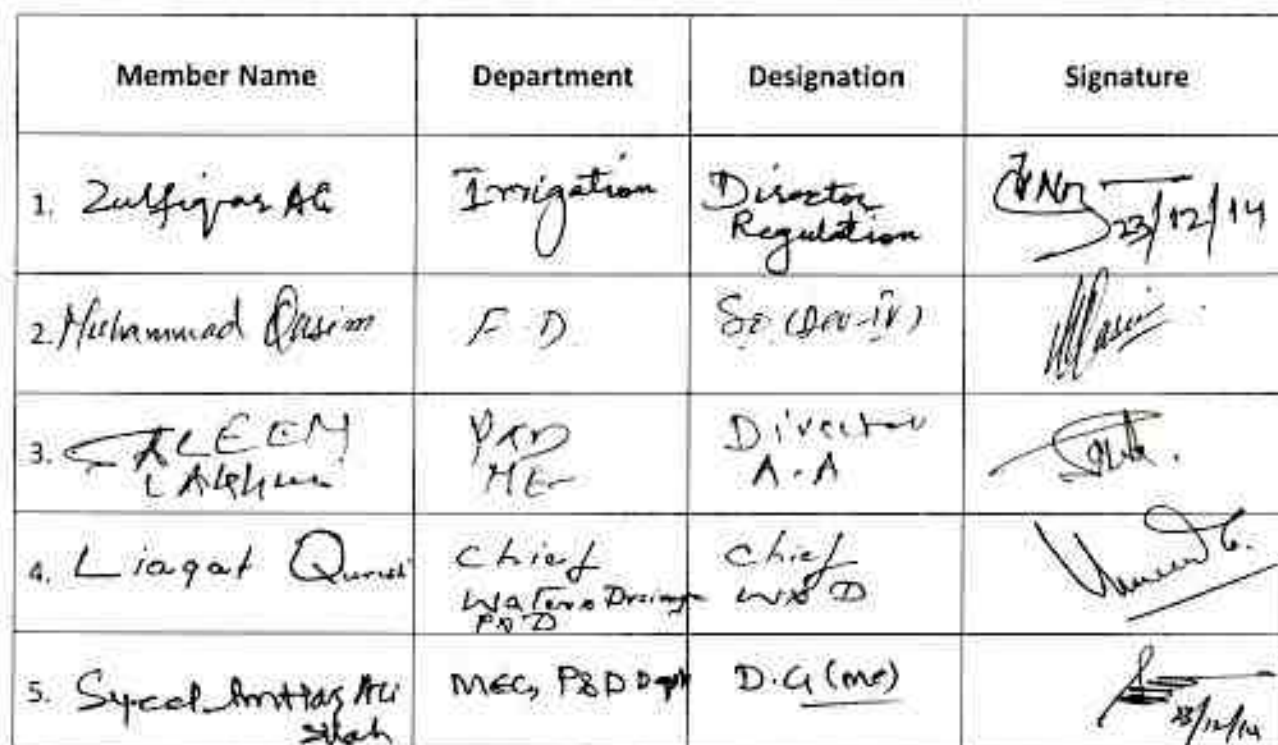 Member Name Department Designation Signature
1. Zulfiqar Ali Irrigation Director
Regulation 23/12/14
2. Muhammad Qasim F.D. SO (Dev-IV)
3. ALEEM P&D Director
ME A.A
4. Liaqat Qureshi Chief Chief
Water & Drainage W&D
P&D
5. Syed Imtiaz Ali MEC, P&D Deptt D.G (ME)
Shah 23/12/14